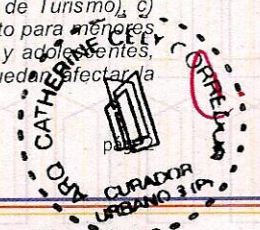 de Turismo), c)
to para menores
y adolescentes,
uedan afectar la
pag 2
ARQ CATHERINE CELY CORREDOR
CURADOR
URBANO 3 (P)